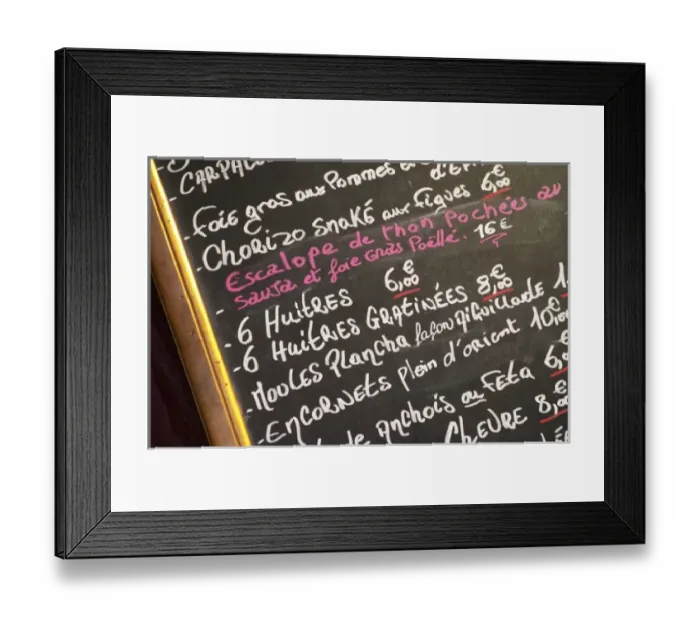 - CARPACC
- foie gras aux Pommes d'Ep
- CHORIZO SNAKÉ aux figues 6,00€
- Escalope de thon Pochées au
sauja et foie Gras Poêllé. 16€
- 6 HuitRES 6,00€
- 6 HuitRES GRATINÉES 8,00€
- MOULES Plancha façon
- ENCORNETS plein d'orient 10,00
de Anchois au FETA 6,0
CHEVRE 8,00€